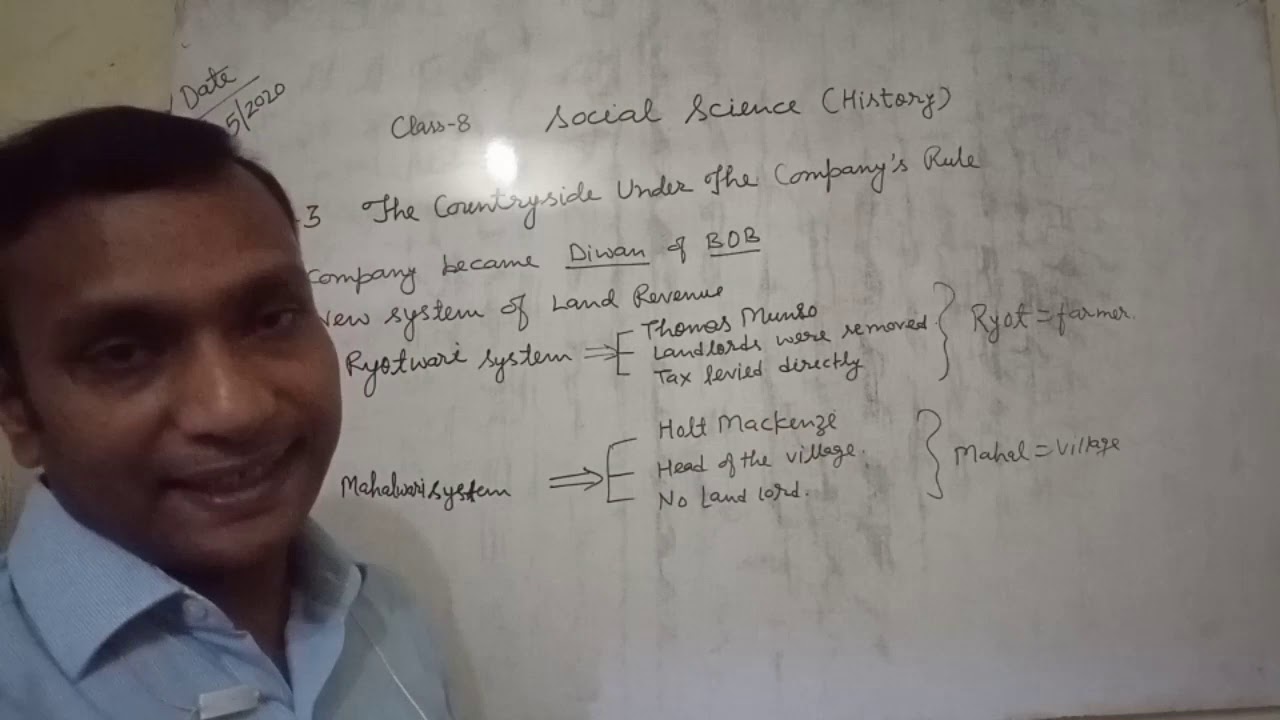 Date
5/2020
Class-8 Social Science (History)
3 The Countryside Under The Company's Rule
Company became Diwan of BOB
New system of Land Revenue
Ryotwari system ⇒ Thomas Munro
Landlords were removed
Tax levied directly
Ryot = farmer.
Mahalwari system ⇒ Holt Mackenze
Head of the village.
No Land lord.
Mahal = village